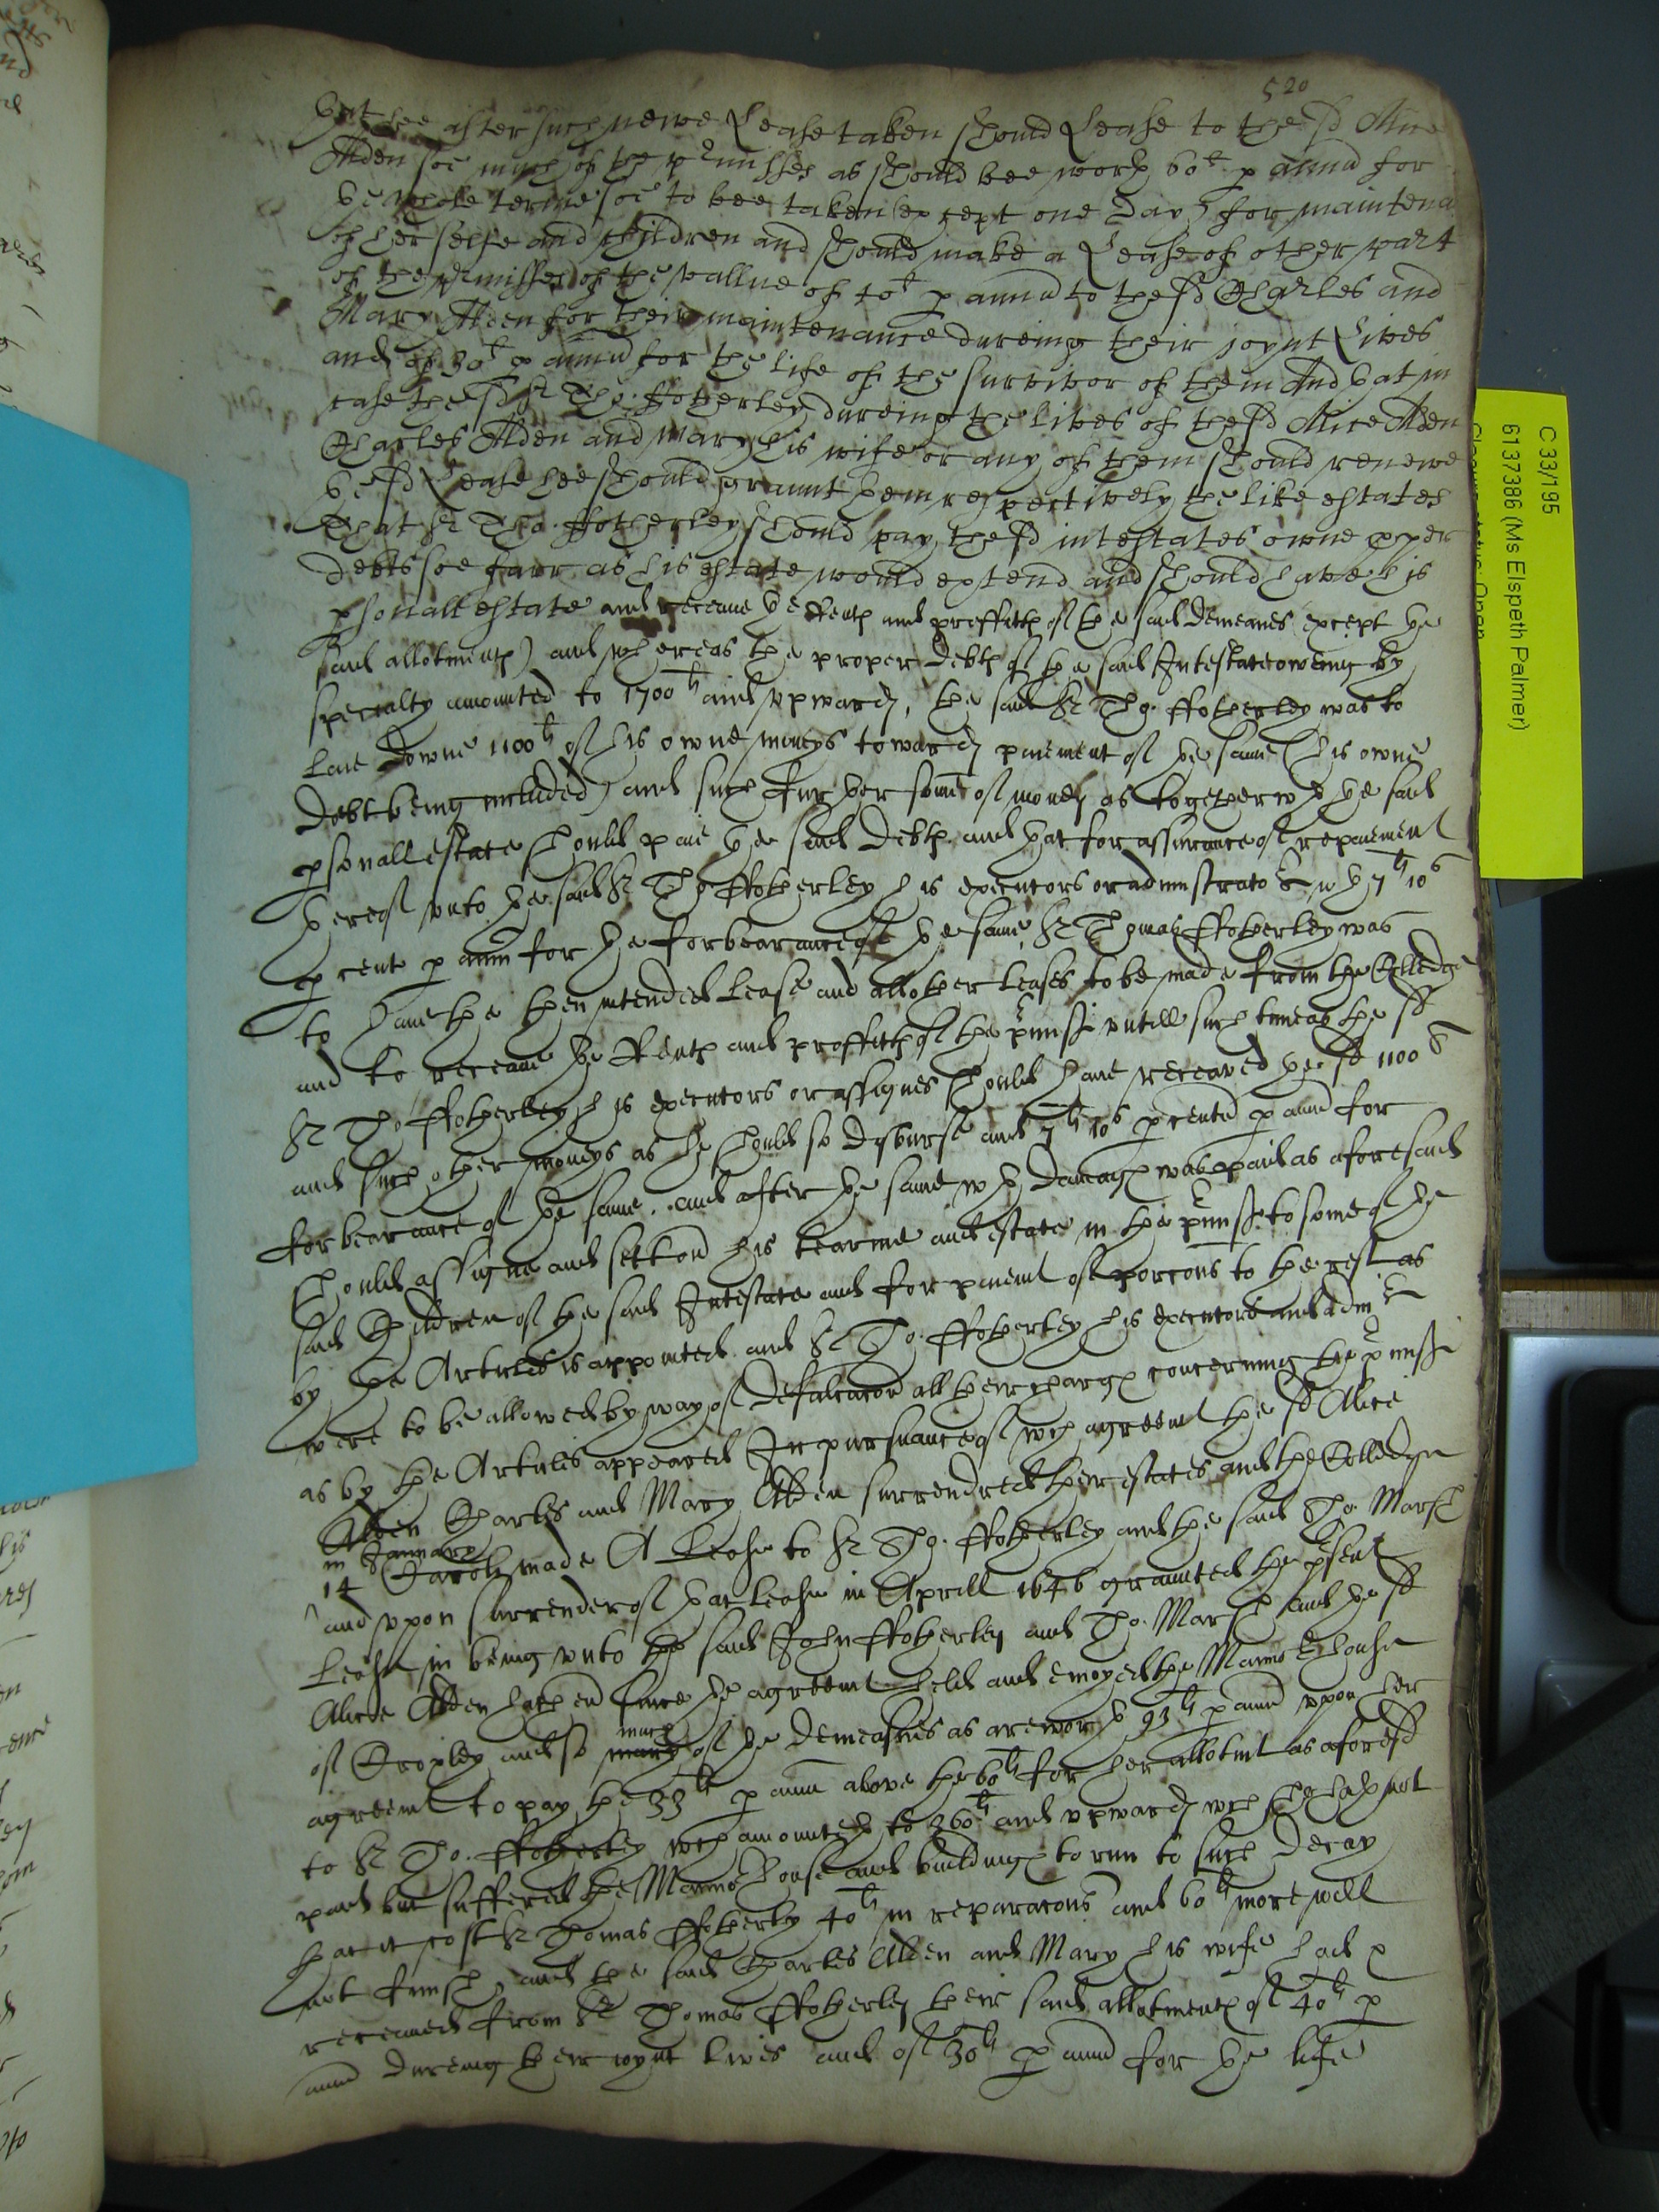 520
yt hee after such newe Lease taken should Lease to the sd Alice
Alden soe much of the pmisses as should bee worth 60l p annu for
ye whole terme soe to bee taken (except one day) for maintena
of her selfe and children and should make a Lease of other part
of the pmisses of the vallue of 40l p annu to the sd Charles and
Mary Alden for their maintenance dureing their joynt Lives
and of 30l p annu for the life of the survivor of them And yat in
case the sd Sr Tho: ffotherley dureing the lives of the sd Alice Alden
Charles Alden and Mary his wife or any of them should renewe
ye sd Lease hee should graunt yem respectively the like estates
That Sr Tho: ffotherley should pay the sd intestates owne pper
debts soe farr as his estate would extend and should have his
psonall estate and receave ye Rents and proffitts of the said Demeanes (except ye
said allotments) and whereas the proper debts of the said Intestate oweing by
specialty amounted to 1700li and upwards, the said Sr Tho: ffotherley was to
laie downe 1100li of his owne moneys towards paiement of ye same (his owne
debt being included) and such further some of money as together wth ye said
psonall estate should paie ye said Debts and yat for assurance of repaiement
yereof unto ye said Sr Tho ffotherley his executors or administrators wth 7li 10s
p cent p ann for ye forbearance of ye same, Sr Thomas ffotherley was
to have the then intended Lease and all other leases to be made from the Colledge
and to receave ye Rents and proffitts of the pmisses untill such time as the sd
Sr Tho: ffotherley his executors or assignes should have receaved ye sd 1100li
and such other moneys as he should so disburse and 7li 10s p centu p annu for
forbearance of ye same. and after ye same wth damages was paid as aforesaid
should assigne and sett over his tearme and estate in the pmisses to some of ye
said Children of the said Intestate and for paiemt of porcons to the rest as
by the Articles is appointed and Sr Tho: ffotherley his executors and admrs
were to be allowed by way of defalcacon all their charges concerning the pmisses
as by the Articles appeared In pursuance of wch agreemt the sd Alice
Alden Charles and Mary Alden surrendred their estates and the Colledge
in January
14 Caroli made A Lease to Sr Tho: ffotherley and the said Tho: Marsh
and upon surrender of yat Lease in Aprill 1646 graunted the psent
Lease in being unto the said John ffotherley and Tho: Marsh and ye sd
Alice Alden hath ever since ye agreemt held and enjoyed the Mannor house
of Cropley and so many much of ye demeasnes as are worth 93li p annu upon her
agreemt to pay the 33li p ann above the 60li for her allotmt as aforesd
to Sr Tho: ffotherley wch amounteth to 360li and upwards wch she hath not
paid but suffered the Mannor house and buildings to run to such decay
that it cost Sr Thomas ffotherley 40li in reparacons and 60li more will
not finish, and the said Charles Alden and Mary his wife had
receaved from Sr Thomas ffotherley their said allotments of 40li p
annu dureing their joynt lives and of 30li p annu for ye life
C 33/195
6137386 (Ms Elspeth Palmer)